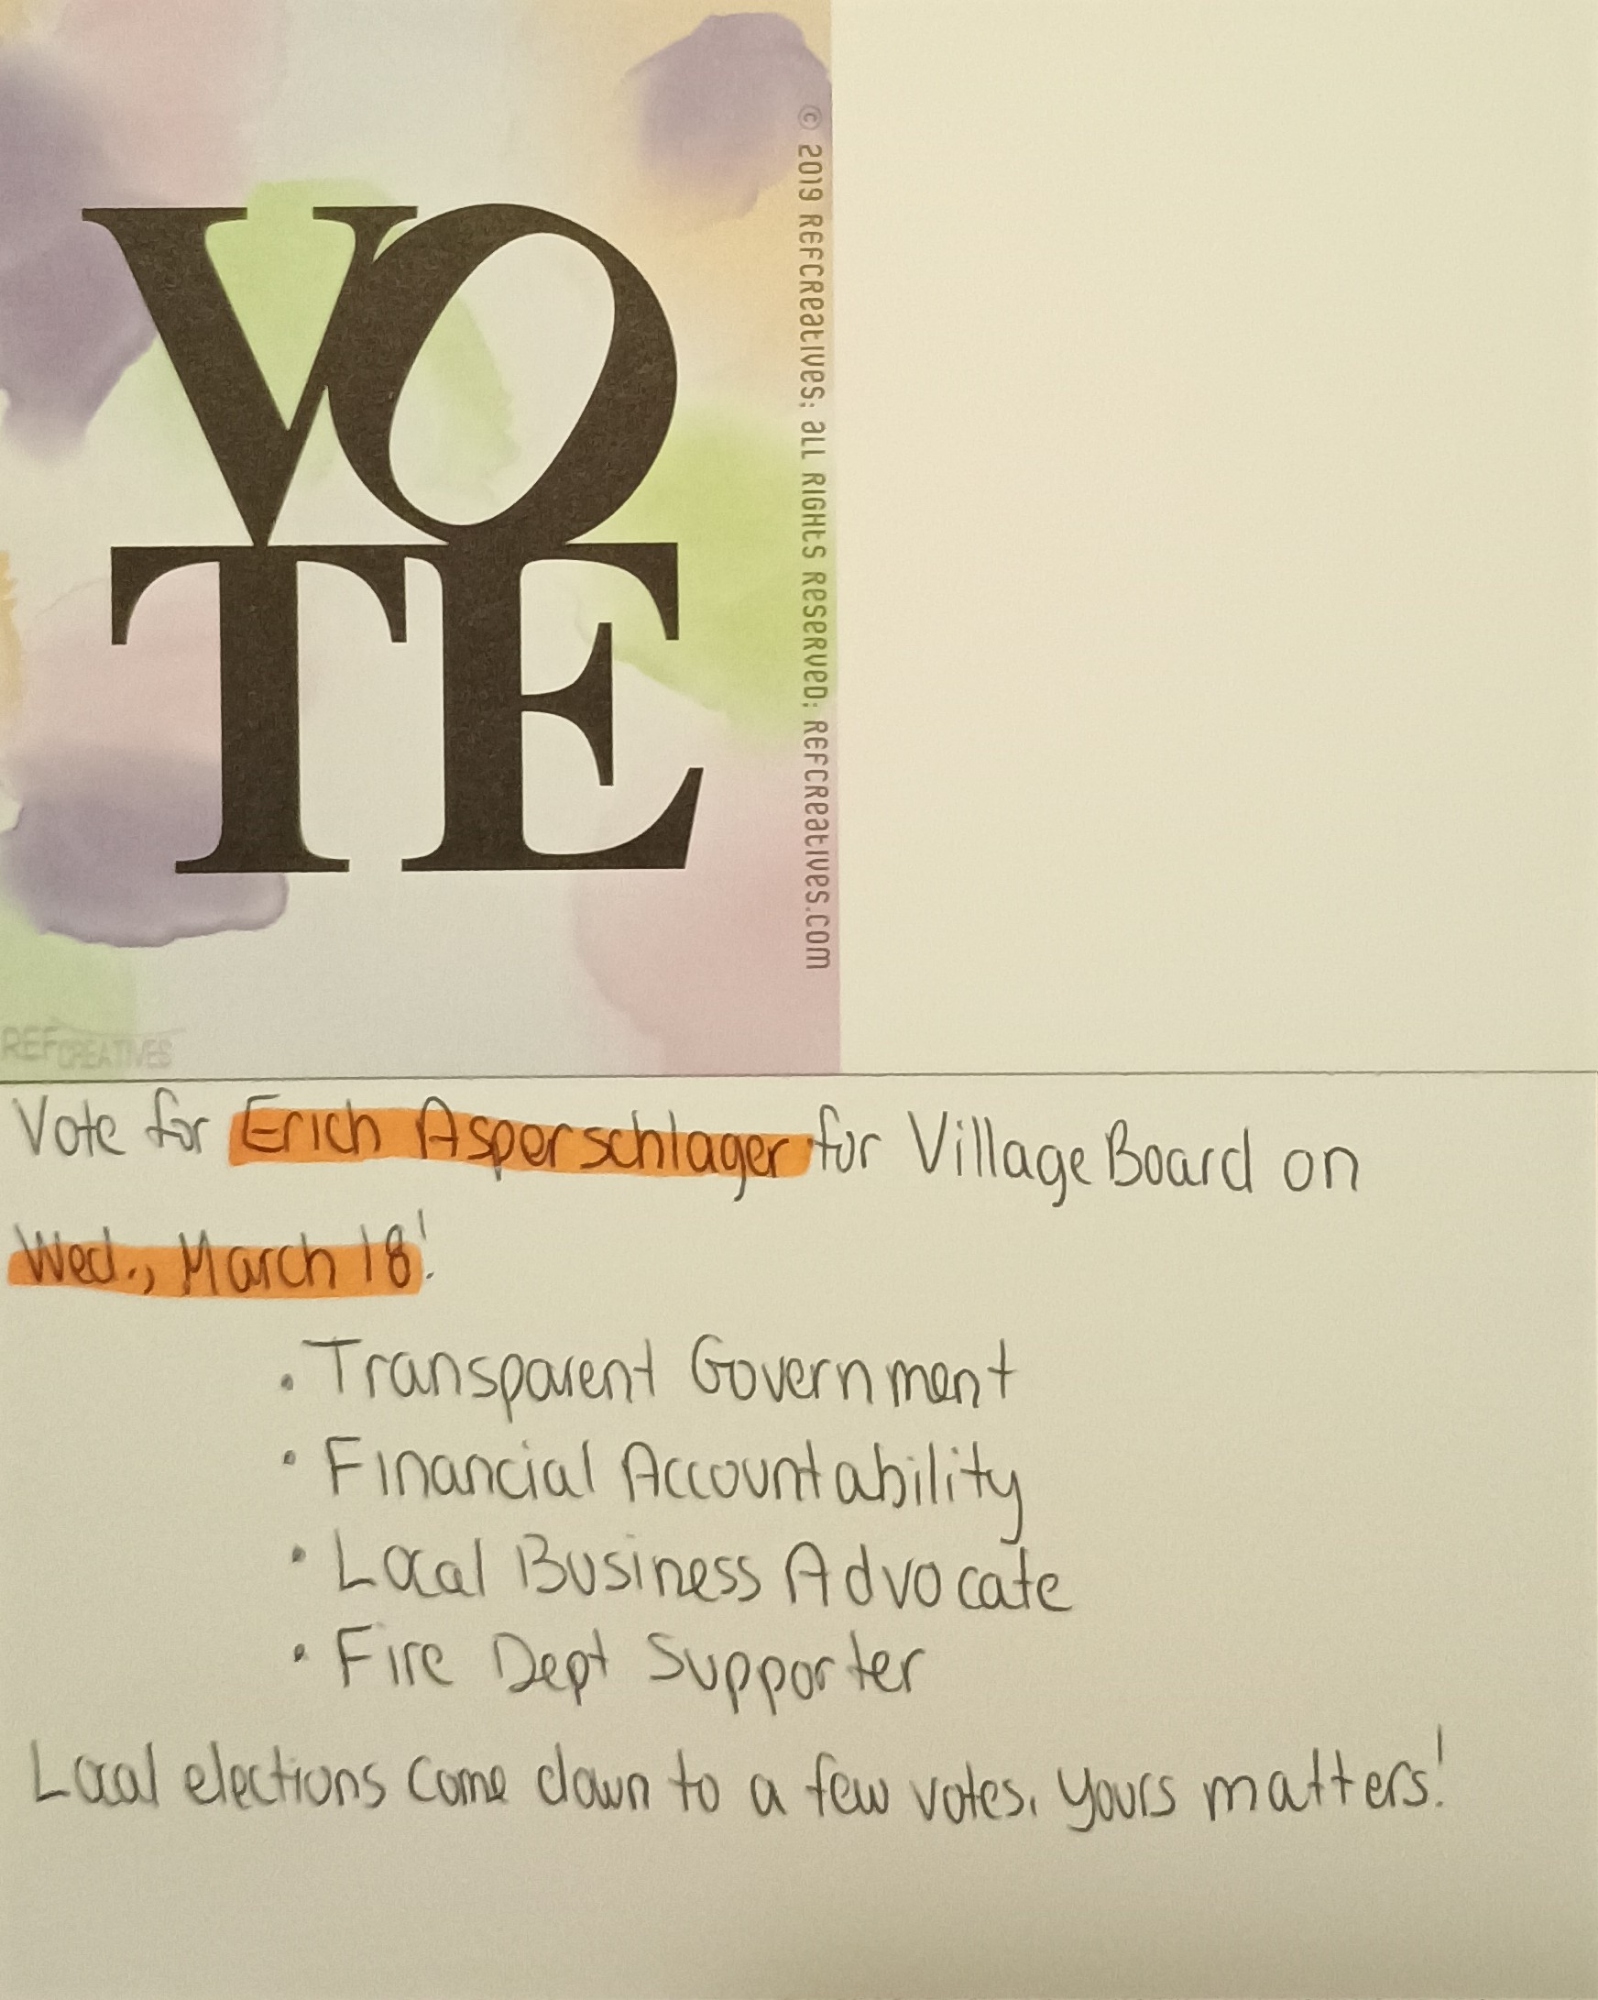 VOTE
© 2019 REFCReatives; all Rights Reserved; REFCReatives.com
REFCREATIVES
Vote for Erich Asperschlager for Village Board on
Wed., March 18!
• Transparent Government
• Financial Accountability
• Local Business Advocate
• Fire Dept Supporter
Local elections come down to a few votes. Yours matters!